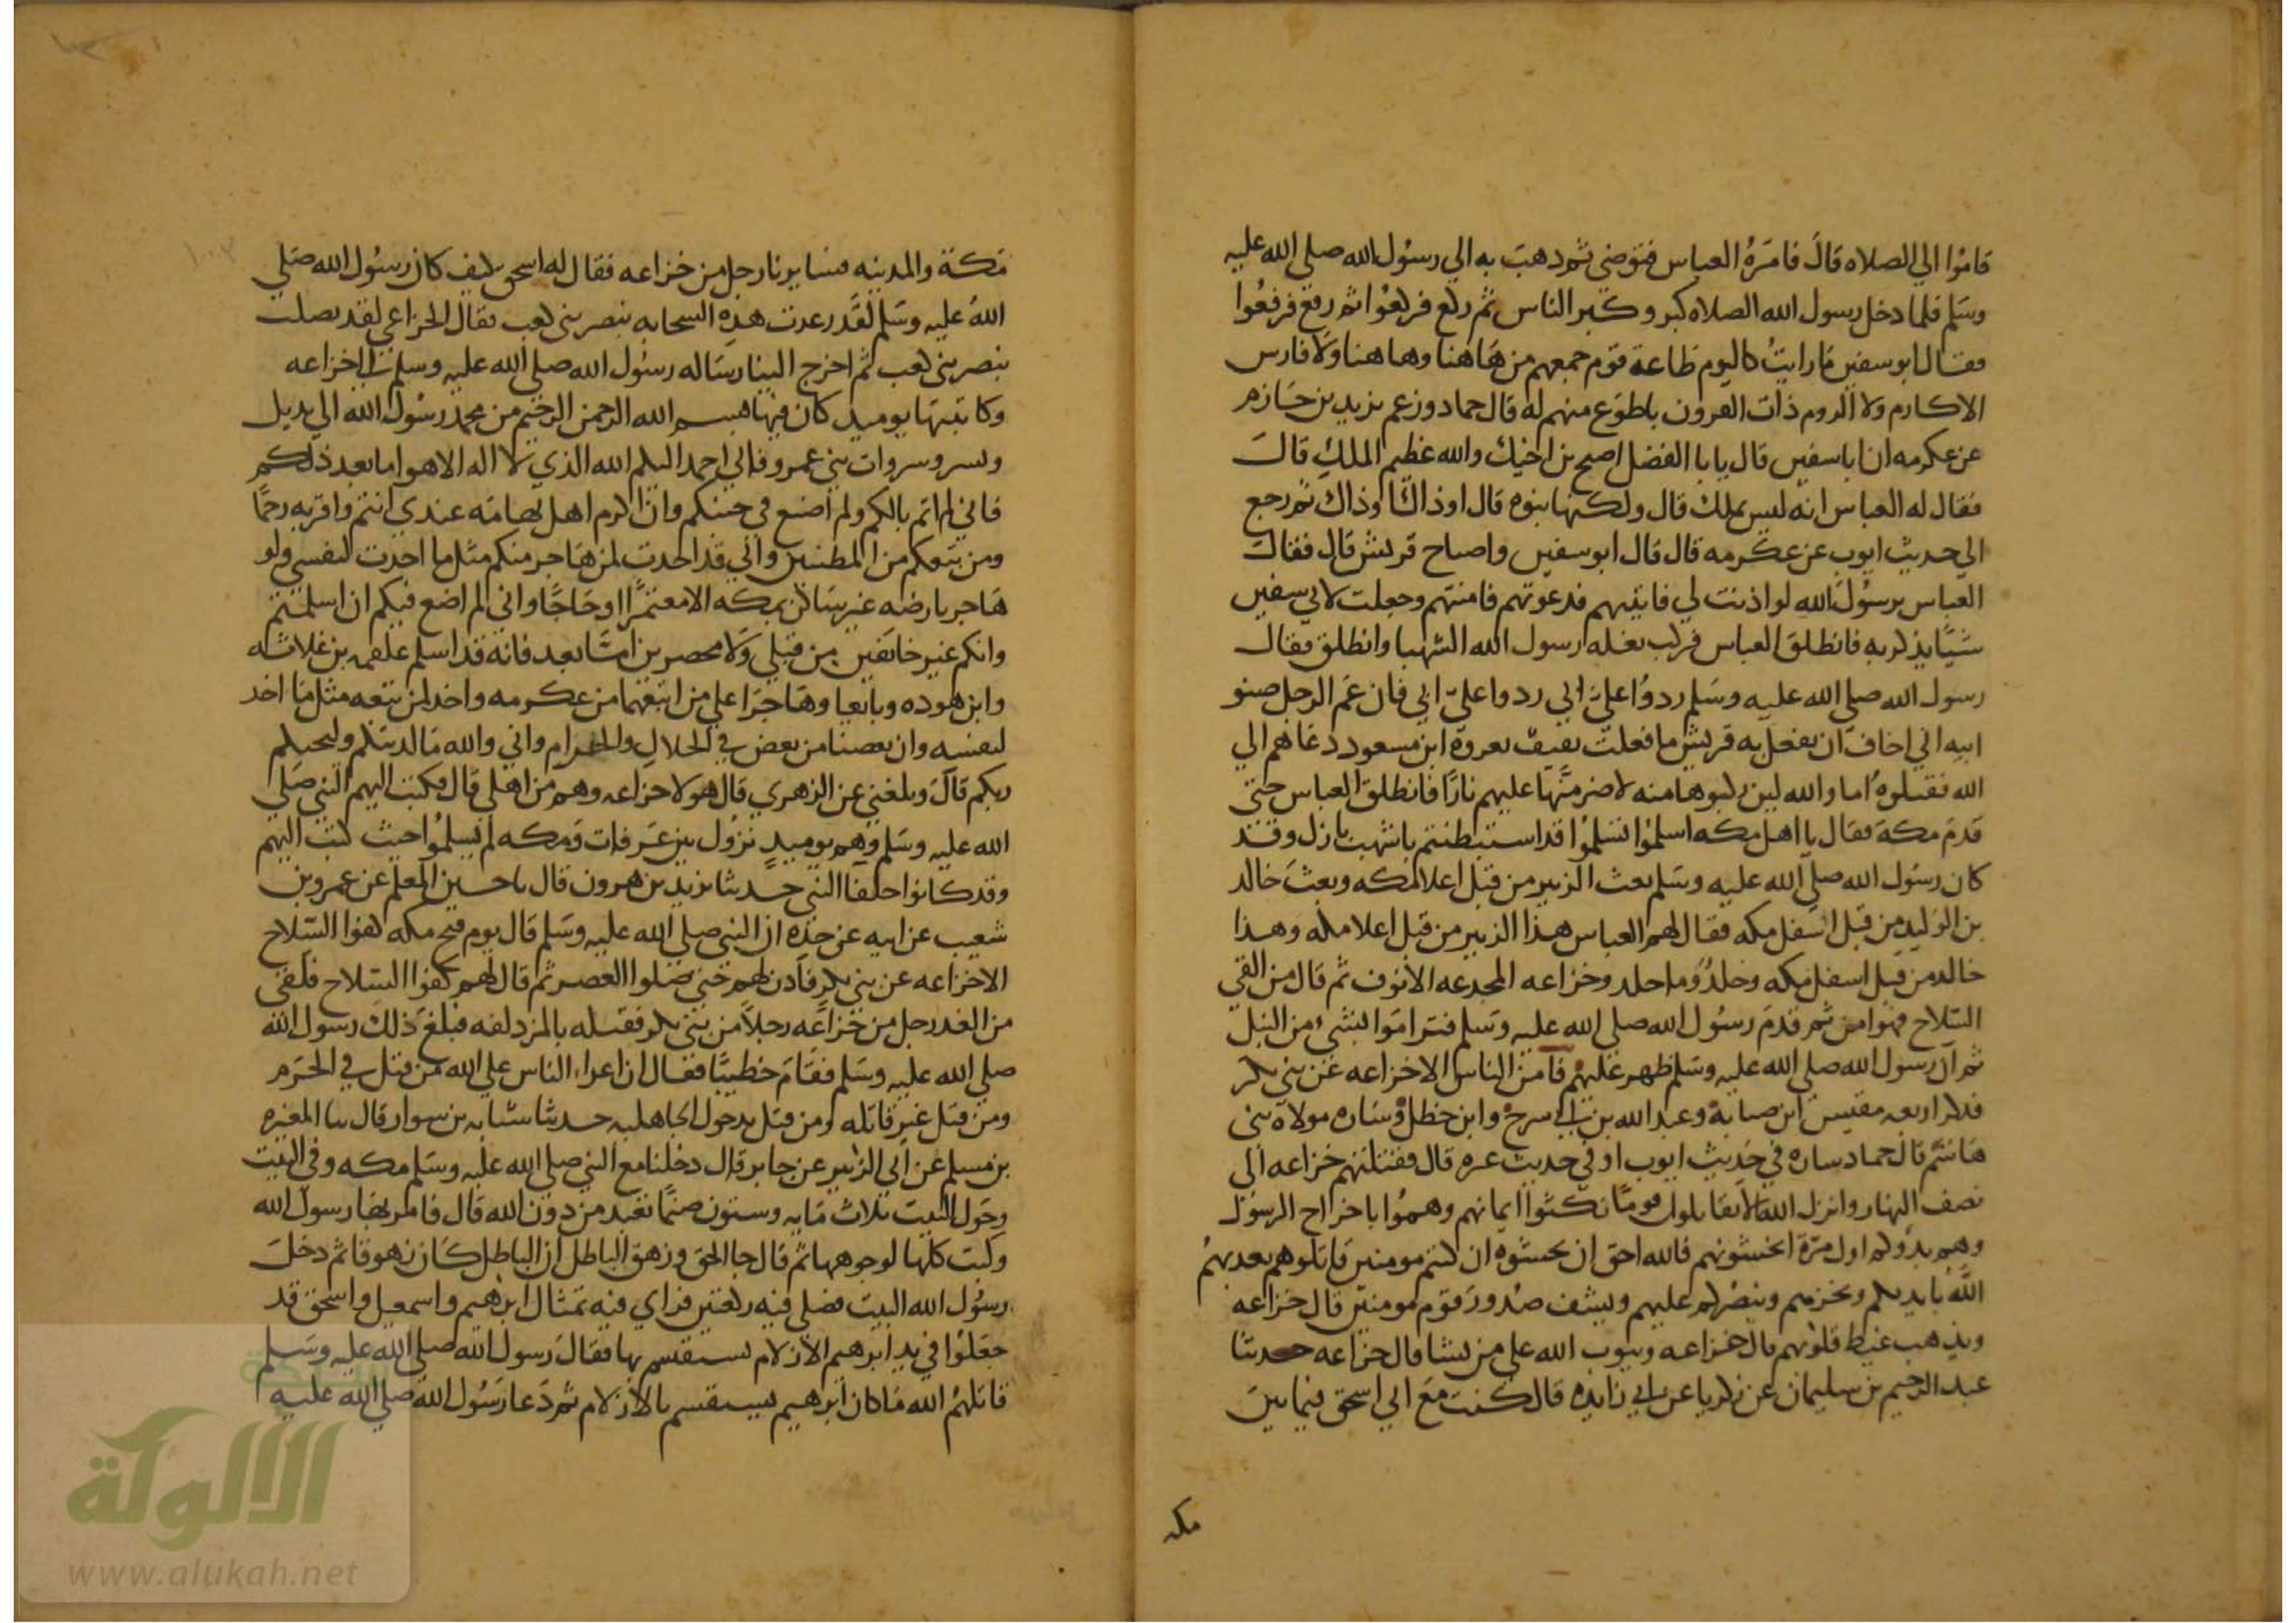 قاموا الي الصلاه قال فامره العباس فتوضي ثم ذهب به الي رسول الله صلي الله عليه
وسلم فلما دخل رسول الله الصلاه كبر وكبر الناس ثم ركع فركعوا ثم رفع فرفعوا
فقال ابو سفين ما رايت كاليوم طاعة قوم جمعهم من هاهنا وهاهنا ولا فارس
الاكارم ولا الروم ذات القرون باطوع منهم له قال حماد وزعم يزيد بن حازم
عن عكرمه ان ابا سفين قال يا با الفضل اصبح بن اخيك والله عظيم الملك قال
فقال له العباس انه ليس بملك قال ولكنها نبوه قال او ذاك او ذاك ثم رجع
الي حديث ايوب عن عكرمه قال قال ابو سفين واصباح قريش قال فقال
العباس يرسول الله لو اذنت لي فاتيهم فدعوتهم فامنتهم وجعلت لابي سفين
شيا يذكر به فانطلق العباس فركب بغله رسول الله الشهبا وانطلق فقال
رسول الله صلي الله عليه وسلم ردوا علي ابي ردوا علي ابي فان عم الرجل صنو
ابيه اني اخاف ان تفعل به قريش ما فعلت ثقيف بعروة ابن مسعود دعاهم الي
الله فقتلوه اما والله لين ركبوها منه لاضرمنها عليهم نارا فانطلق العباس حتي
قدم مكة فقال يا اهل مكه اسلموا تسلموا قد استبطنتم باشهب بازل وقد
كان رسول الله صلي الله عليه وسلم بعث الزبير من قبل اعلا مكه وبعث خالد
بن الوليد من قبل اسفل مكه فقال لهم العباس هذا الزبير من قبل اعلا مكه وهذا
خالد من قبل اسفل مكه وخلد وما خلد وخزاعه المجدعه الانوف ثم قال من القي
السلاح فهو امن ثم قدم رسول الله صلي الله عليه وسلم فتراموا بشي من النبل
ثم ان رسول الله صلي الله عليه وسلم ظهر عليهم فامن الناس الا خزاعه عن بني بكر
فذكر اربعه مقيس ابن صبابة وعبد الله بن ابي سرح وابن خطل وساره مولاة بني
هاشم قال حماد ساره في حديث ايوب او في حديث غيره قال فقتلتهم خزاعه الي
نصف النهار وانزل الله الا تقاتلون قوما نكثوا ايمانهم وهموا باخراج الرسول
وهم بدوكم اول مرة اتخشونهم فالله احق ان تخشوه ان كنتم مومنين قاتلوهم يعذبهم
الله بايديكم ويخزهم وينصركم عليهم ويشف صدور قوم مومنين قال خزاعه
ويذهب غيظ قلوبهم قال خزاعه ويتوب الله علي من يشا قال خزاعه حدثنا
عبد الرحيم بن سليمان عن زكريا عن ابي زايده قال كنت مع ابي اسحق فيما بين
مكه
مكة والمدينه فسايرنا رجل من خزاعه فقال له اسحق كيف كان رسول الله صلي
الله عليه وسلم لقد رعدت هذه السحابه بنصر بني كعب فقال الخزاعي لقد نصلت
بنصر بني كعب ثم اخرج الينا رساله رسول الله صلي الله عليه وسلم الي خزاعه
وكاتبتها يوميد كان فيها بسم الله الرحمن الرحيم من محمد رسول الله الي بديل
وبسر وسروات بني عمرو فاني احمد اليكم الله الذي لا اله الا هو اما بعد ذلكم
فاني لم اثم بالكم ولم اضع في جنبكم وان اكرم اهل تهامه عندي انتم واقربه رحما
ومن تبعكم من المطيبين واني قد اخذت لمن هاجر منكم مثل ما اخذت لنفسي ولو
هاجر بارضه غير ساكن بمكه الا معتمرا او حاجا واني لم اضع فيكم ان اسلمتم
وانكم غير خائفين من قبلي ولا محصرين اما بعد فانه قد اسلم علقمه بن علاثه
وابن هوده وبايعا وهاجرا علي من اتبعهما من عكرمه واخذ لمن تبعه مثل ما اخذ
لنفسه وان بعضنا من بعض في الحلال والحرام واني والله ما كذبتكم وليحبكم
ربكم قال وبلغني عن الزهري قال هولا خزاعه وهم من اهلي قال فكتب اليهم النبي صلي
الله عليه وسلم وهم يوميد نزول بين عرفات ومكه لم يسلموا حيث كتب اليهم
وقد كانوا حلفا النبي حدثنا يزيد بن هرون قال نا حسين المعلم عن عمرو بن
شعيب عن ابيه عن جده ان النبي صلي الله عليه وسلم قال يوم فتح مكه كفوا السلاح
الا خزاعه عن بني بكر فاذن لهم حتي صلوا العصر ثم قال لهم كفوا السلاح فلقي
من الغد رجل من خزاعه رجلا من بني بكر فقتله بالمزدلفه فبلغ ذلك رسول الله
صلي الله عليه وسلم فقام خطيبا فقال ان اعداء الناس علي الله من قتل في الحرم
ومن قتل غير قاتله ومن قتل بدحول الجاهليه حدثنا شبابه بن سوار قال ثنا المغيره
بن مسلم عن ابي الزبير عن جابر قال دخلنا مع النبي صلي الله عليه وسلم مكه وفي البيت
وحول البيت ثلاث مايه وستون صنما تعبد من دون الله قال فامر بها رسول الله
وكبت كلها لوجوهها ثم قال جا الحق وزهق الباطل ان الباطل كان زهوقا ثم دخل
رسول الله البيت فصلي فيه ركعتين فراي فيه تمثال ابرهيم واسمعيل واسحق قد
جعلوا في يد ابرهيم الازلام يستقسم بها فقال رسول الله صلي الله عليه وسلم
قاتلهم الله ما كان ابرهيم يستقسم بالازلام ثم دعا رسول الله صلي الله عليه
الألوكة
www.alukah.net